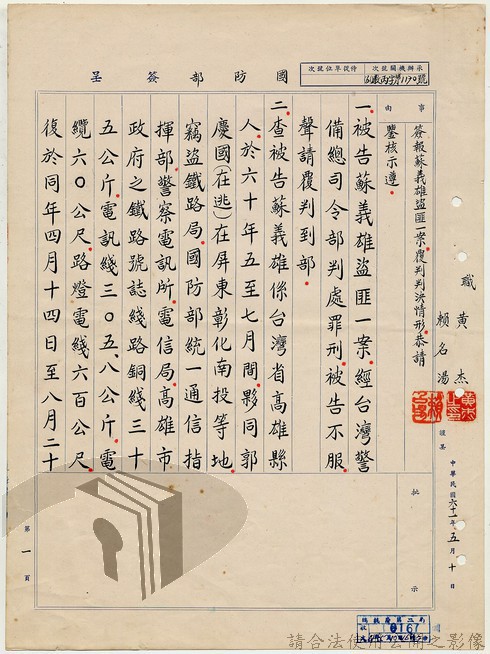 國防部簽呈
承辦機關號次
侍從單位號次
職黃杰
賴名湯
謹呈
中華民國六十一年五月十日
事由
簽報蘇義雄盜匪一案,覆判判決情形,恭請
鑒核示遵。
批示
一、被告蘇義雄盜匪一案,經台灣警
備總司令部判處罪刑,被告不服,
聲請覆判到部。
二、查被告蘇義雄係台灣省高雄縣
人,於六十年五至七月間,夥同郭
慶國(在逃)在屏東彰化南投等地,
竊盜鐵路局,國防部統一通信指
揮部,警察電訊所,電信局,高雄市
政府之鐵路號誌綫路銅綫三十
五公斤,電訊綫三0五、八公斤,電
纜六0公尺,路燈電綫六百公尺。
復於同年四月十四日至八月二十
第一頁
0167
請合法使用公開之影像